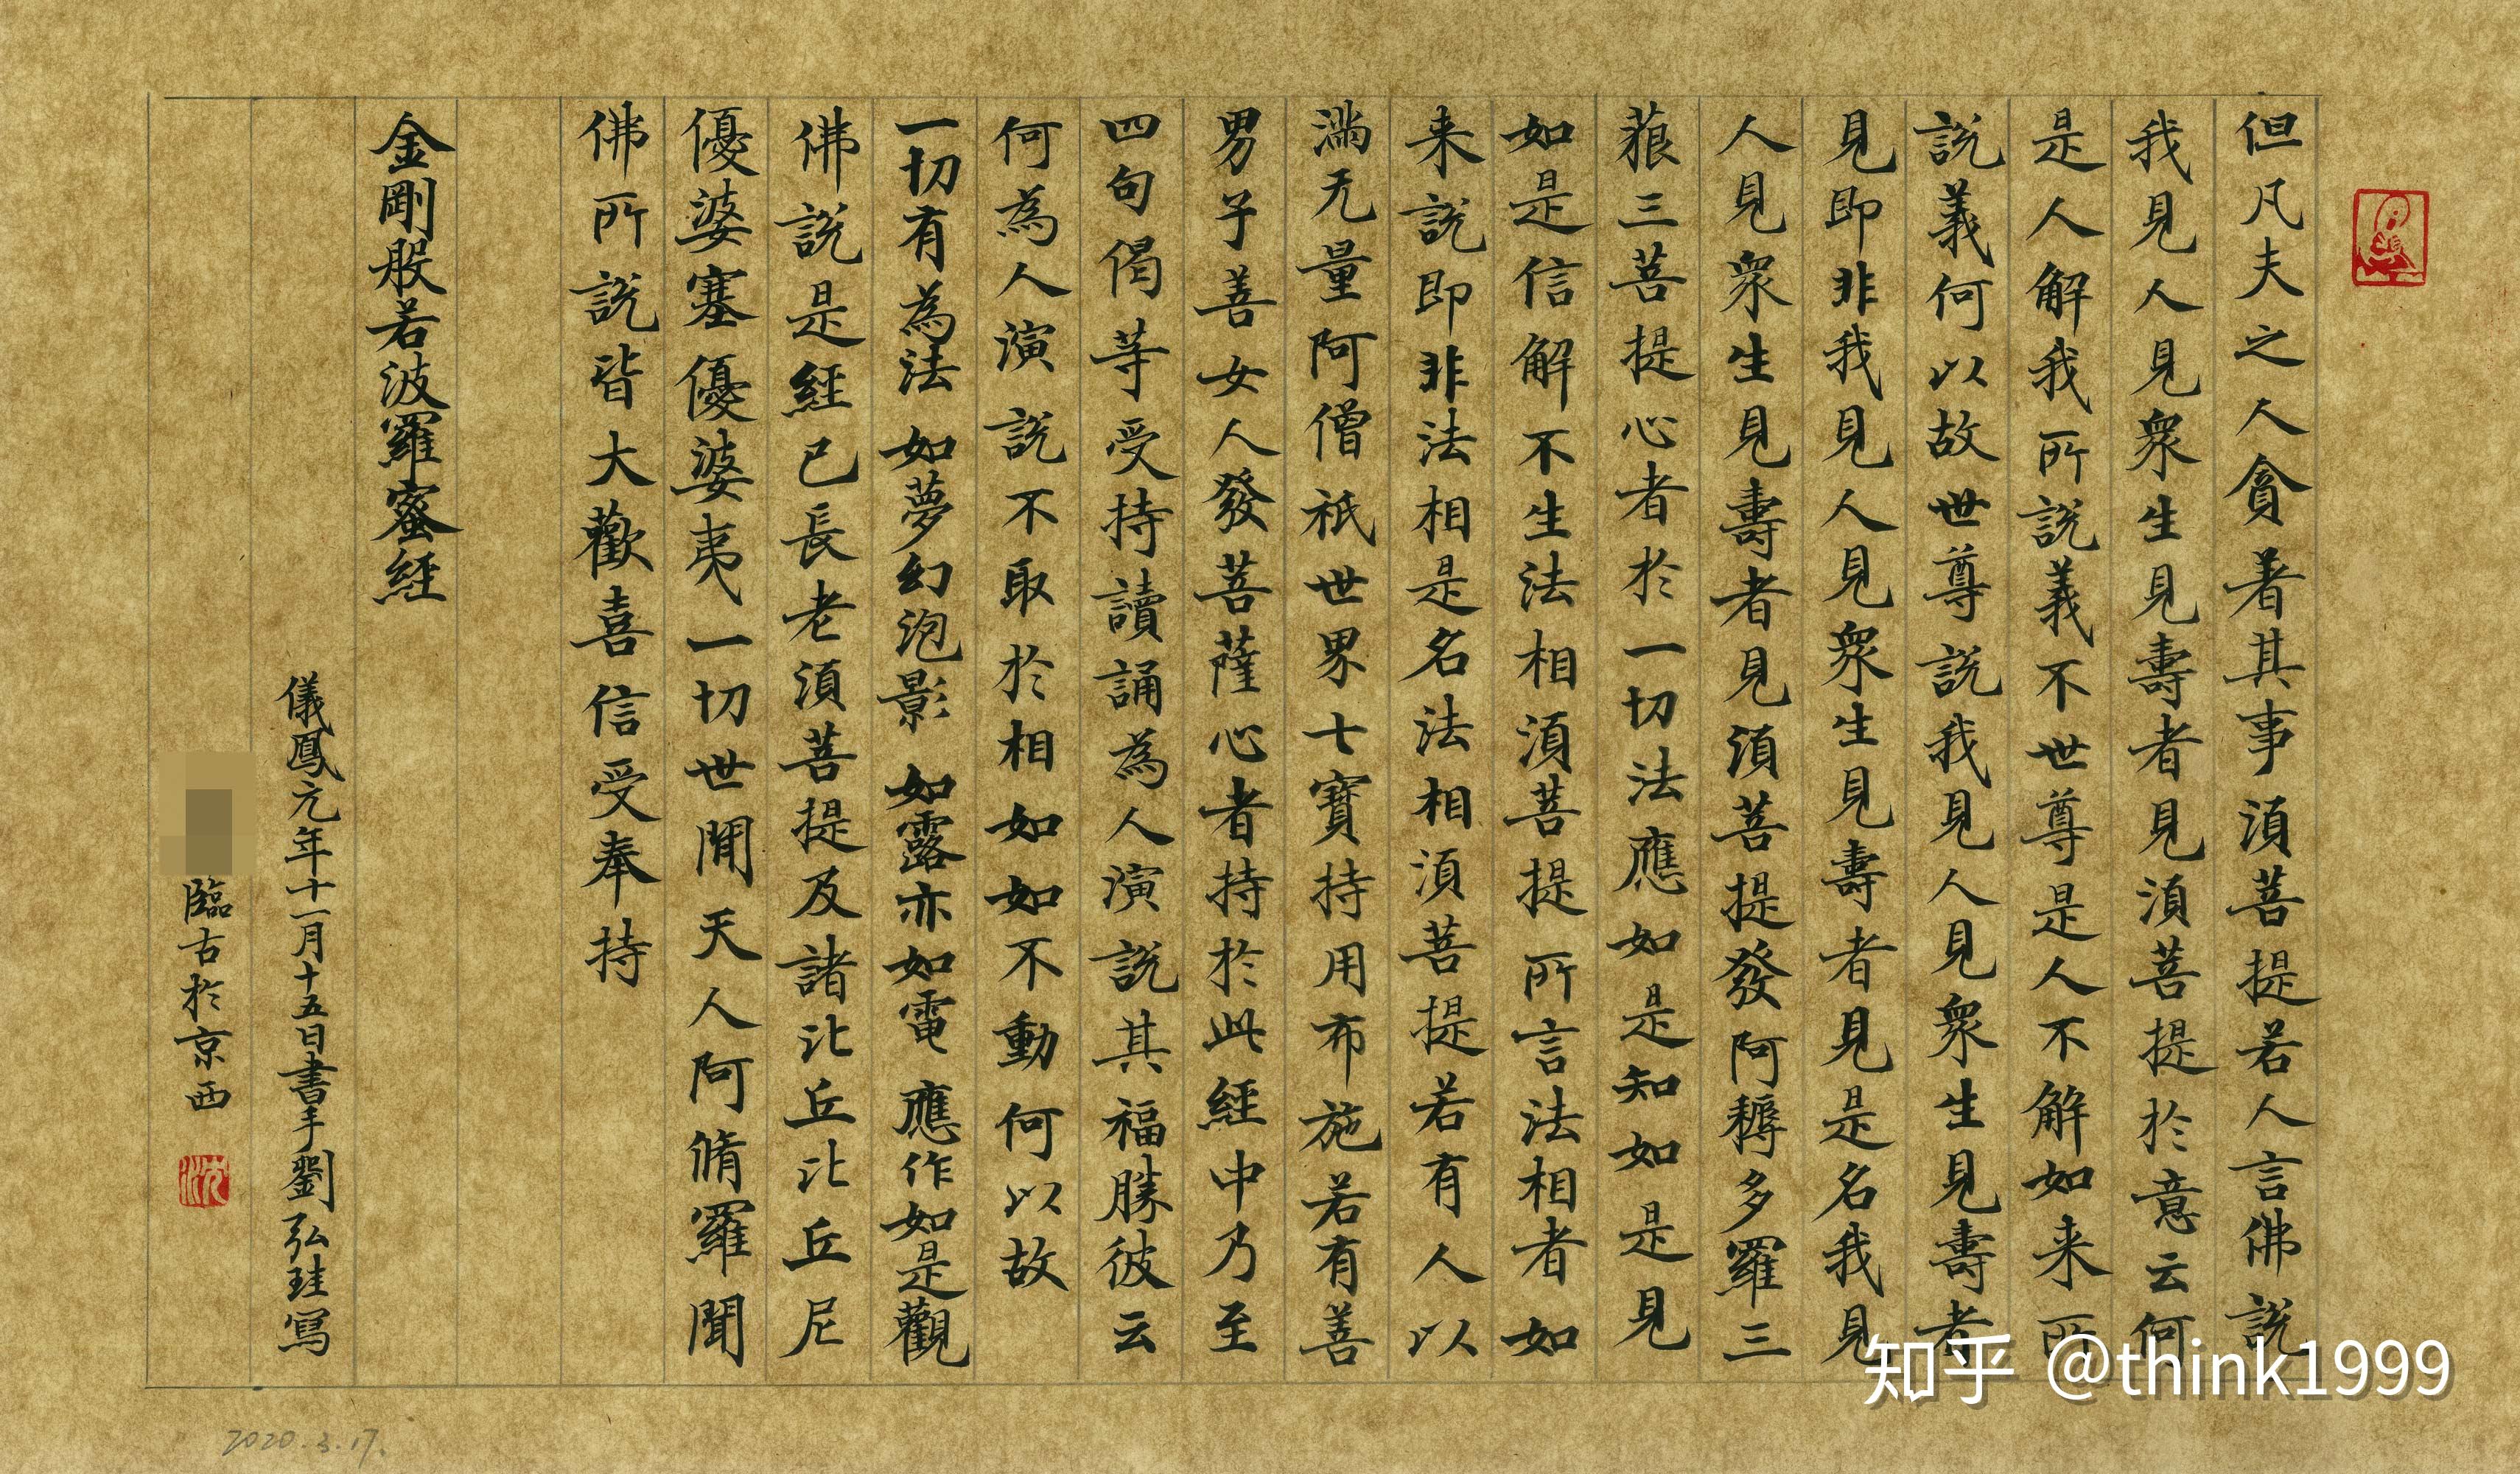 但凡夫之人貪著其事須菩提若人言佛說
我見人見衆生見壽者見須菩提於意云何
是人解我所說義不世尊是人不解如来所
說義何以故世尊說我見人見衆生見壽者
見即非我見人見衆生見壽者見是名我見
人見衆生見壽者見須菩提發阿耨多羅三
藐三菩提心者於一切法應如是知如是見
如是信解不生法相須菩提所言法相者如
来說即非法相是名法相須菩提若有人以
滿无量阿僧祇世界七寶持用布施若有善
男子善女人發菩薩心者持於此經中乃至
四句偈等受持讀誦為人演說其福勝彼云
何為人演說不取於相如如不動何以故
一切有為法如夢幻泡影如露亦如電應作如是觀
佛說是經已長老須菩提及諸比丘比丘尼
優婆塞優婆夷一切世閒天人阿脩羅聞
佛所說皆大歡喜信受奉持
金剛般若波羅蜜經
儀鳳元年十一月十五日書手劉弘珪寫
臨古於京西
沈
2020.3.17.
知乎 @think1999